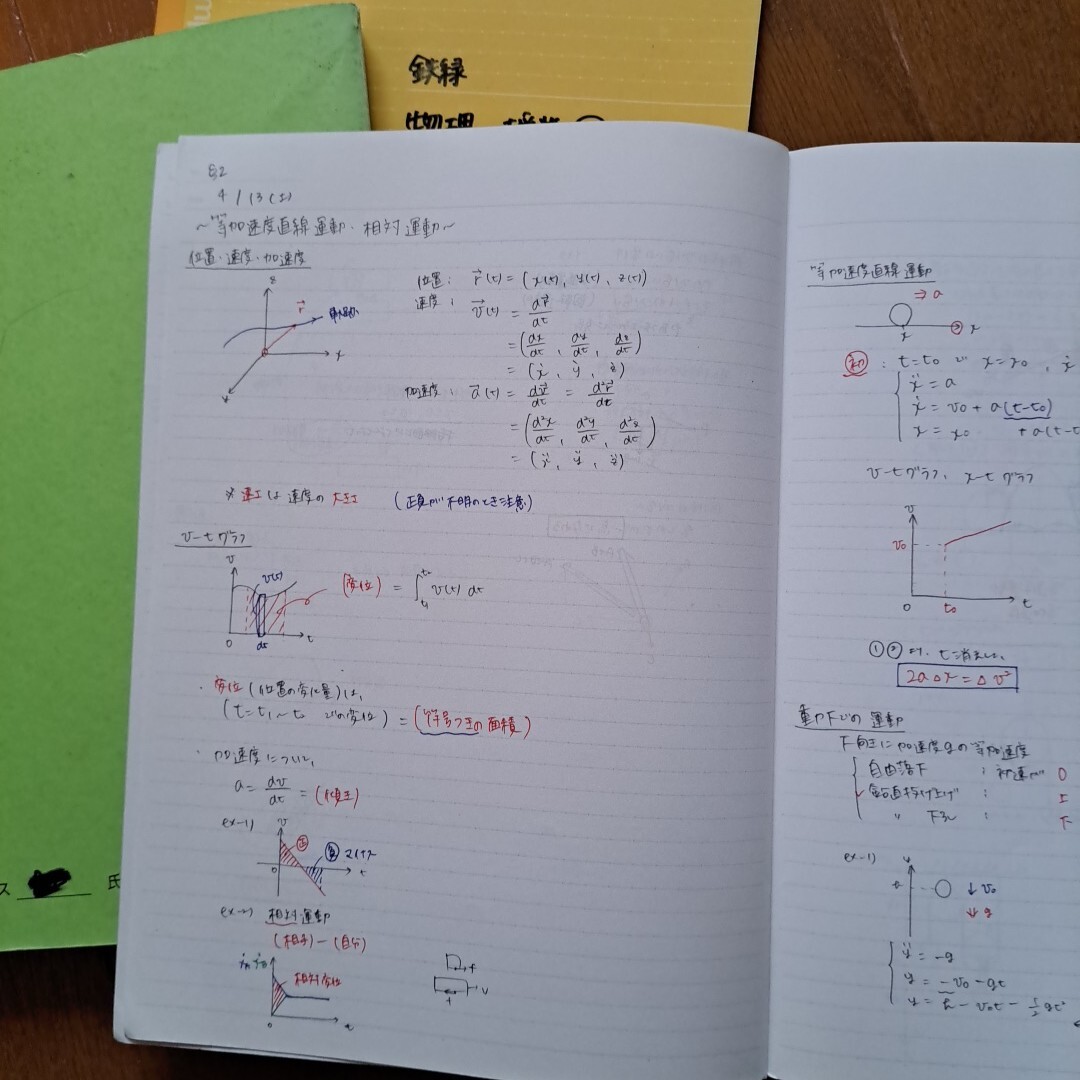 鉄緑
物理
4/13(土)
~等加速度直線運動・相対運動~
位置・速度・加速度
z
r⃗
x
y
位置: r⃗(t) = (x(t), y(t), z(t))
速度: v⃗(t) = dr⃗/dt
= (dx/dt, dy/dt, dz/dt)
= (ẋ, ẏ, ż)
加速度: a⃗(t) = dv⃗/dt = d²r⃗/dt
= (d²x/dt, d²y/dt, d²z/dt)
= (ẍ, ÿ, z̈)
※ 速さは速度の大きさ (正負が不明のとき注意)
v-tグラフ
v
v(t)
0
dt
t
(変位) = ∫ v(t) dt
・変位(位置の変化量)は、
(t=t₁~t₂ での変位) = (符号つきの面積)
・加速度について、
a = dv/dt = (傾き)
ex-1)
v
正
負
0
t
ex-2) 相対運動
(相手)-(自分)
相対変位
0
f
f
v
等加速度直線運動
⇒a
x
x
初: t=t₀ で x=x₀, ẋ
ẍ = a
ẋ = v₀ + a(t-t₀)
x = x₀ + a(t-t
v-tグラフ, x-tグラフ
v
v₀
0
t₀
t
①②より、tを消去し、
2aΔx = Δv²
重力下での運動
下向きに加速度gの等加速度
自由落下 : 初速が 0
鉛直投げ上げ : 上
〃 下ろし : 下
ex-1)
y
↓v₀
↓g
ÿ = -g
ẏ = -v₀ - gt
y = h - v₀t - ½gt²
ス
氏